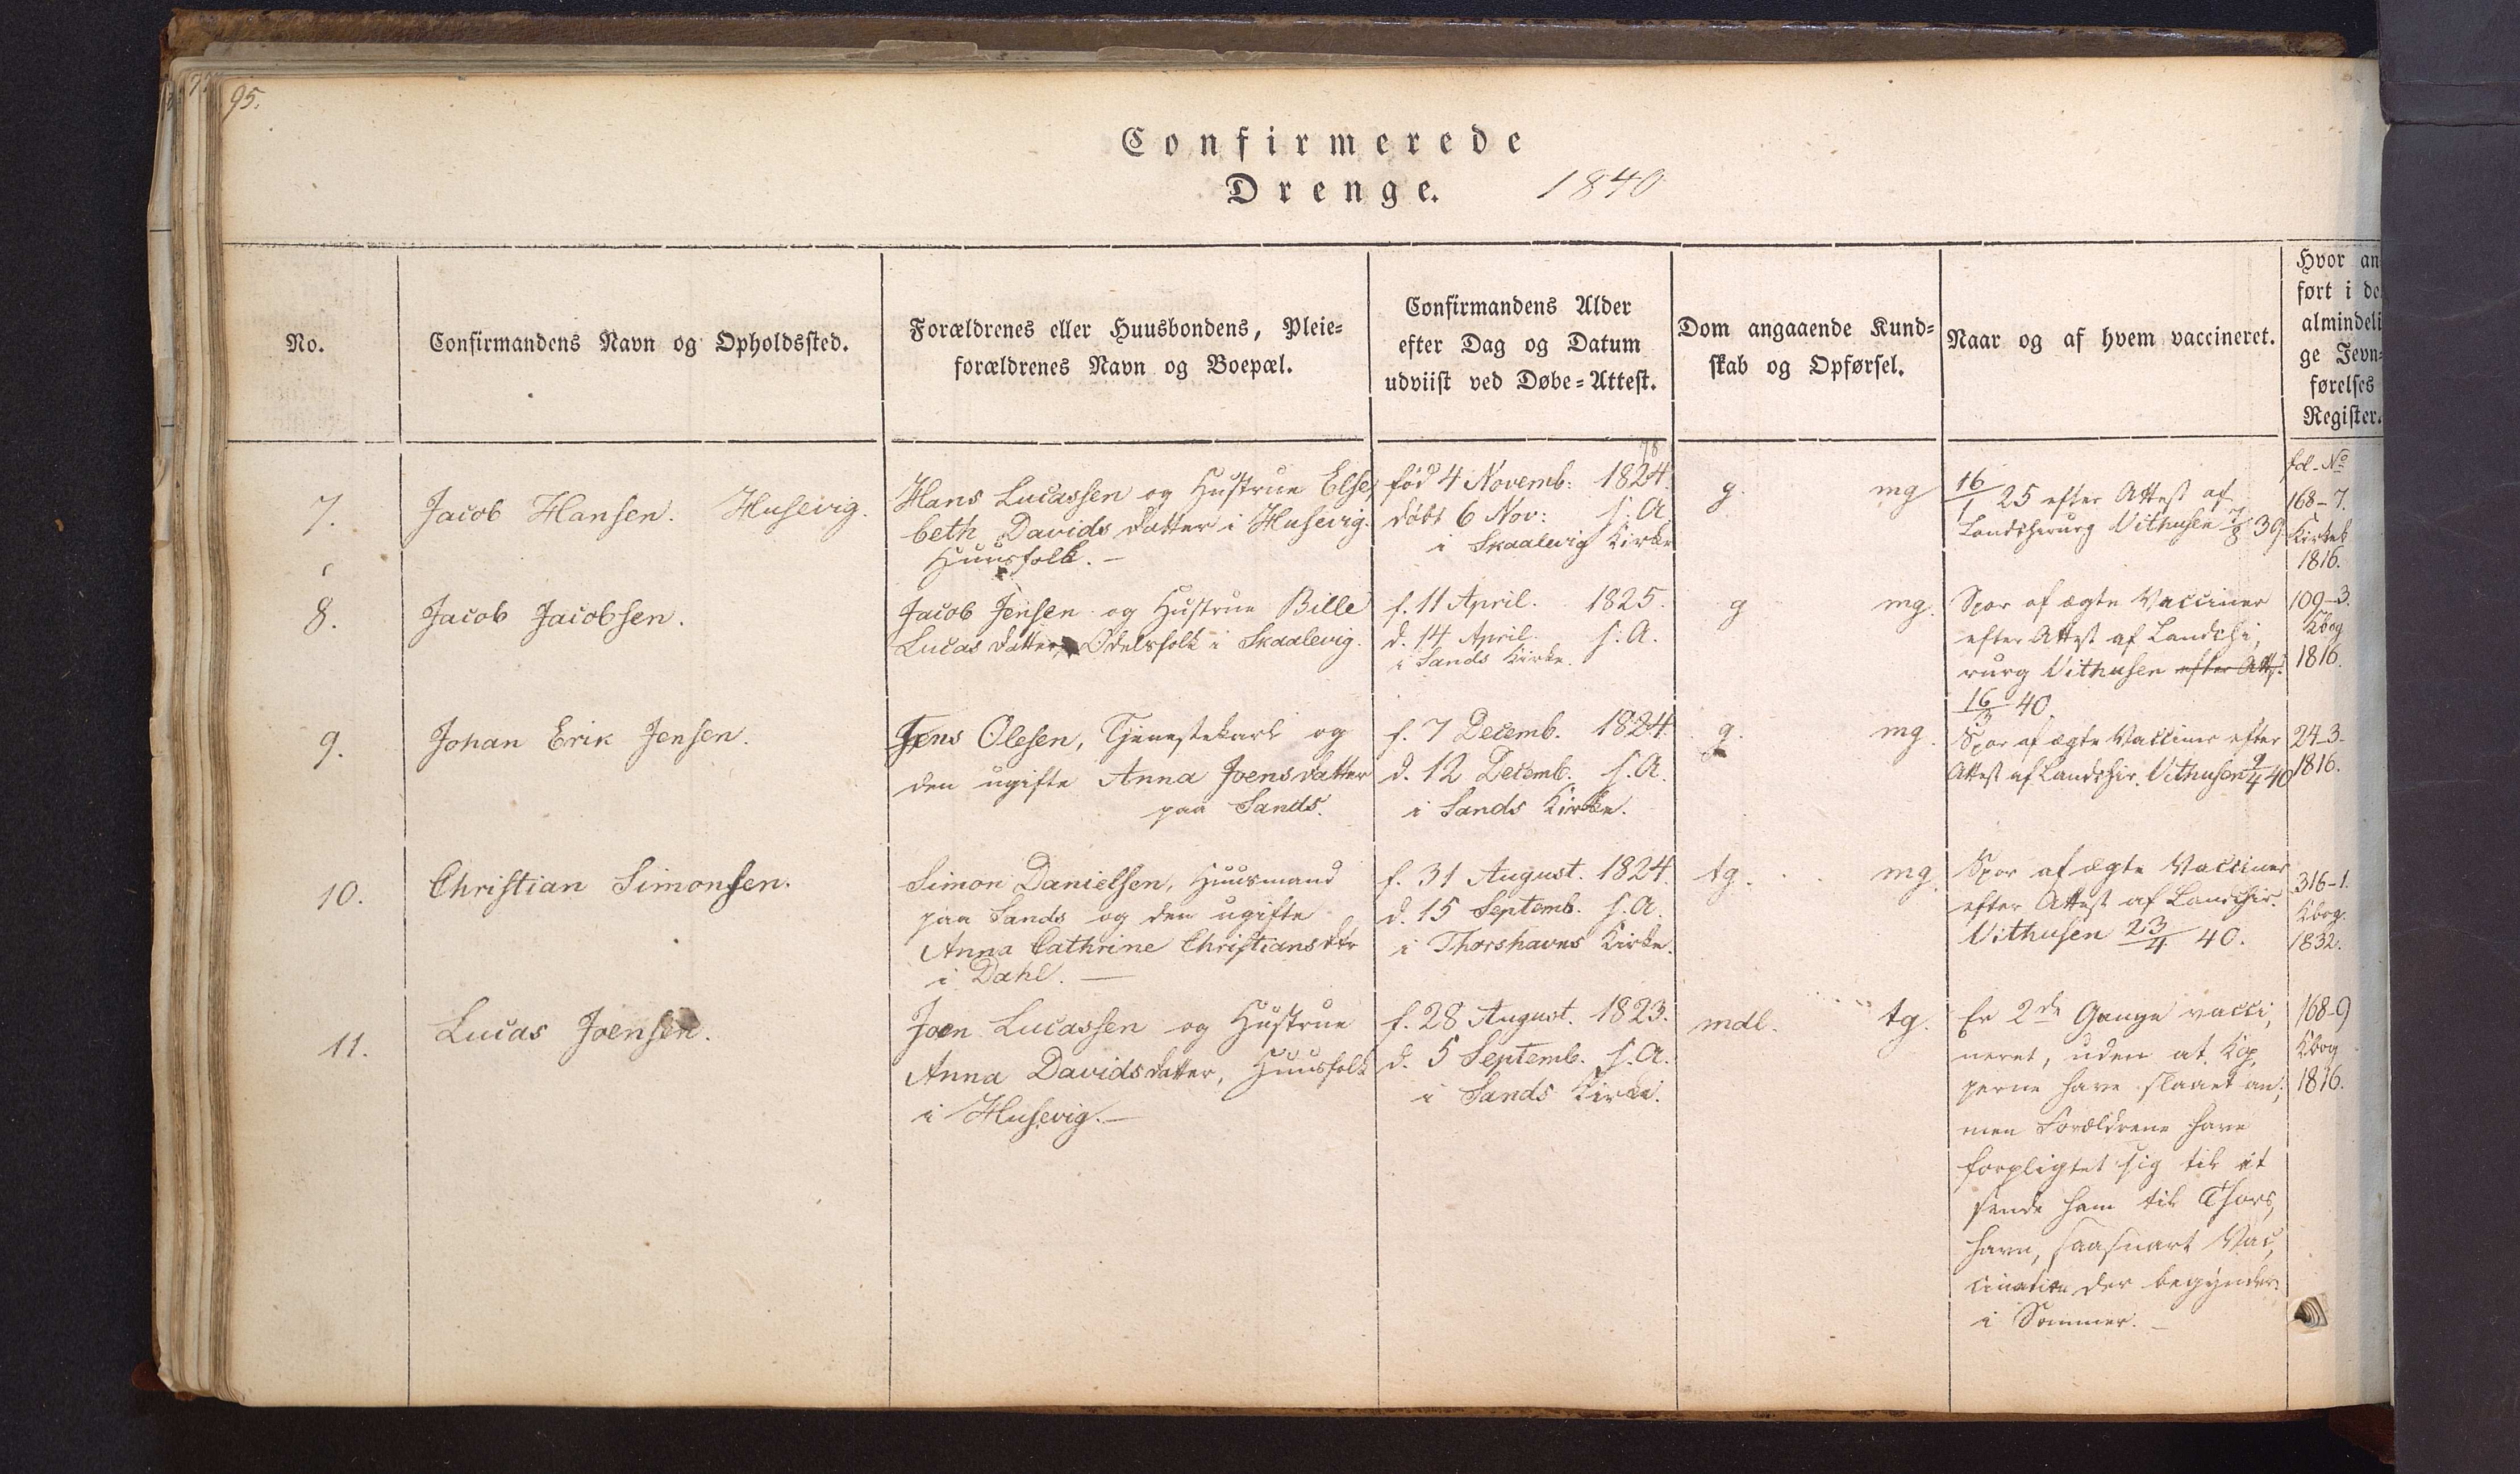 95.
Confirmerede
Drenge. 1840
No.
Confirmandens Navn og Opholdssted.
Forældrenes eller Huusbondens, Pleie=
forældrenes Navn og Boepæl.
Confirmandens Alder
efter Dag og Datum
udviist ved Døbe=Attest.
Dom angaaende Kund=
skab og Opførsel.
Naar og af hvem vaccineret.
Hvor an
ført i de
almindeli
ge Jevn=
førelses
Register.
7.
Jacob Hansen. Husevig.
Hans Lucassen og Hustrue Else,
beth Davids Datter i Husevig.
Huusfolk. –
fød 4 Novemb: 1824.
døbt 6 Nov: s. A.
i Skaalevig Kirke
g. mg
16/1 25 efter Attest af
Landchirurg Vithusen 7/8 39
fol. No
168-7.
Kirkeb
1816.
8.
Jacob Jacobsen.
Jacob Jensen og Hustrue Bille
Lucas Datter, Odelsfolk i Skaalevig.
f. 11 April. 1825.
d. 14 April. s. A.
i Sands Kirke.
g mg.
Spor af ægte Vacciner
efter Attest af Landchi,
rurg Vithusen efter Att.
16/3 40
109-3.
Kbog
1816.
9.
Johan Erik Jensen.
Jens Olesen, Tjenestekarl og
den ugifte Anna Joensdatter
paa Sands.
f. 7 Decemb. 1824.
d. 12 Decemb. s. A.
i Sands Kirke.
g. mg.
Spor af ægte Vacciner efter
Attest af Landchir. Vithusen 9/4 40
24-3-
1816.
10.
Christian Simonsen.
Simon Danielsen, Huusmand
paa Sands og den ugifte
Anna Cathrine Christiansdtr
i Dahl. —
f. 31 August. 1824.
d. 15 Septemb. s. A.
i Thorshavns Kirke.
tg. mg.
Spor af ægte Vacciner
efter Attest af Landchir.
Vithusen 23/4 40.
316-1.
Kbog.
1832.
11.
Lucas Joensen.
Joen Lucassen og Hustrue
Anna Davidsdatter, Huusfolk
i Husevig. —
f. 28 August. 1823.
d. 5 Septemb. s. A.
i Sands Kirke.
mdl. tg.
Er 2de Gange vacci,
neret, uden at Kop,
perne have slaaet an;
men Forældrene have
forpligtet sig til at
sende ham til Thors,
havn, saasnart Vac,
cination der begynder
i Sommer. –
168-9
Kbog
1816.